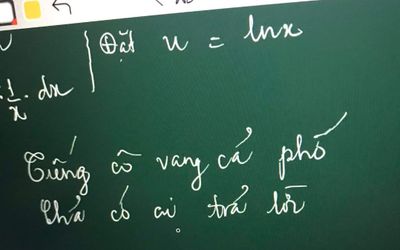 Đặt u = lnx
1/x . dx
Tiếng cô vang cả phố
Chả có ai trả lời